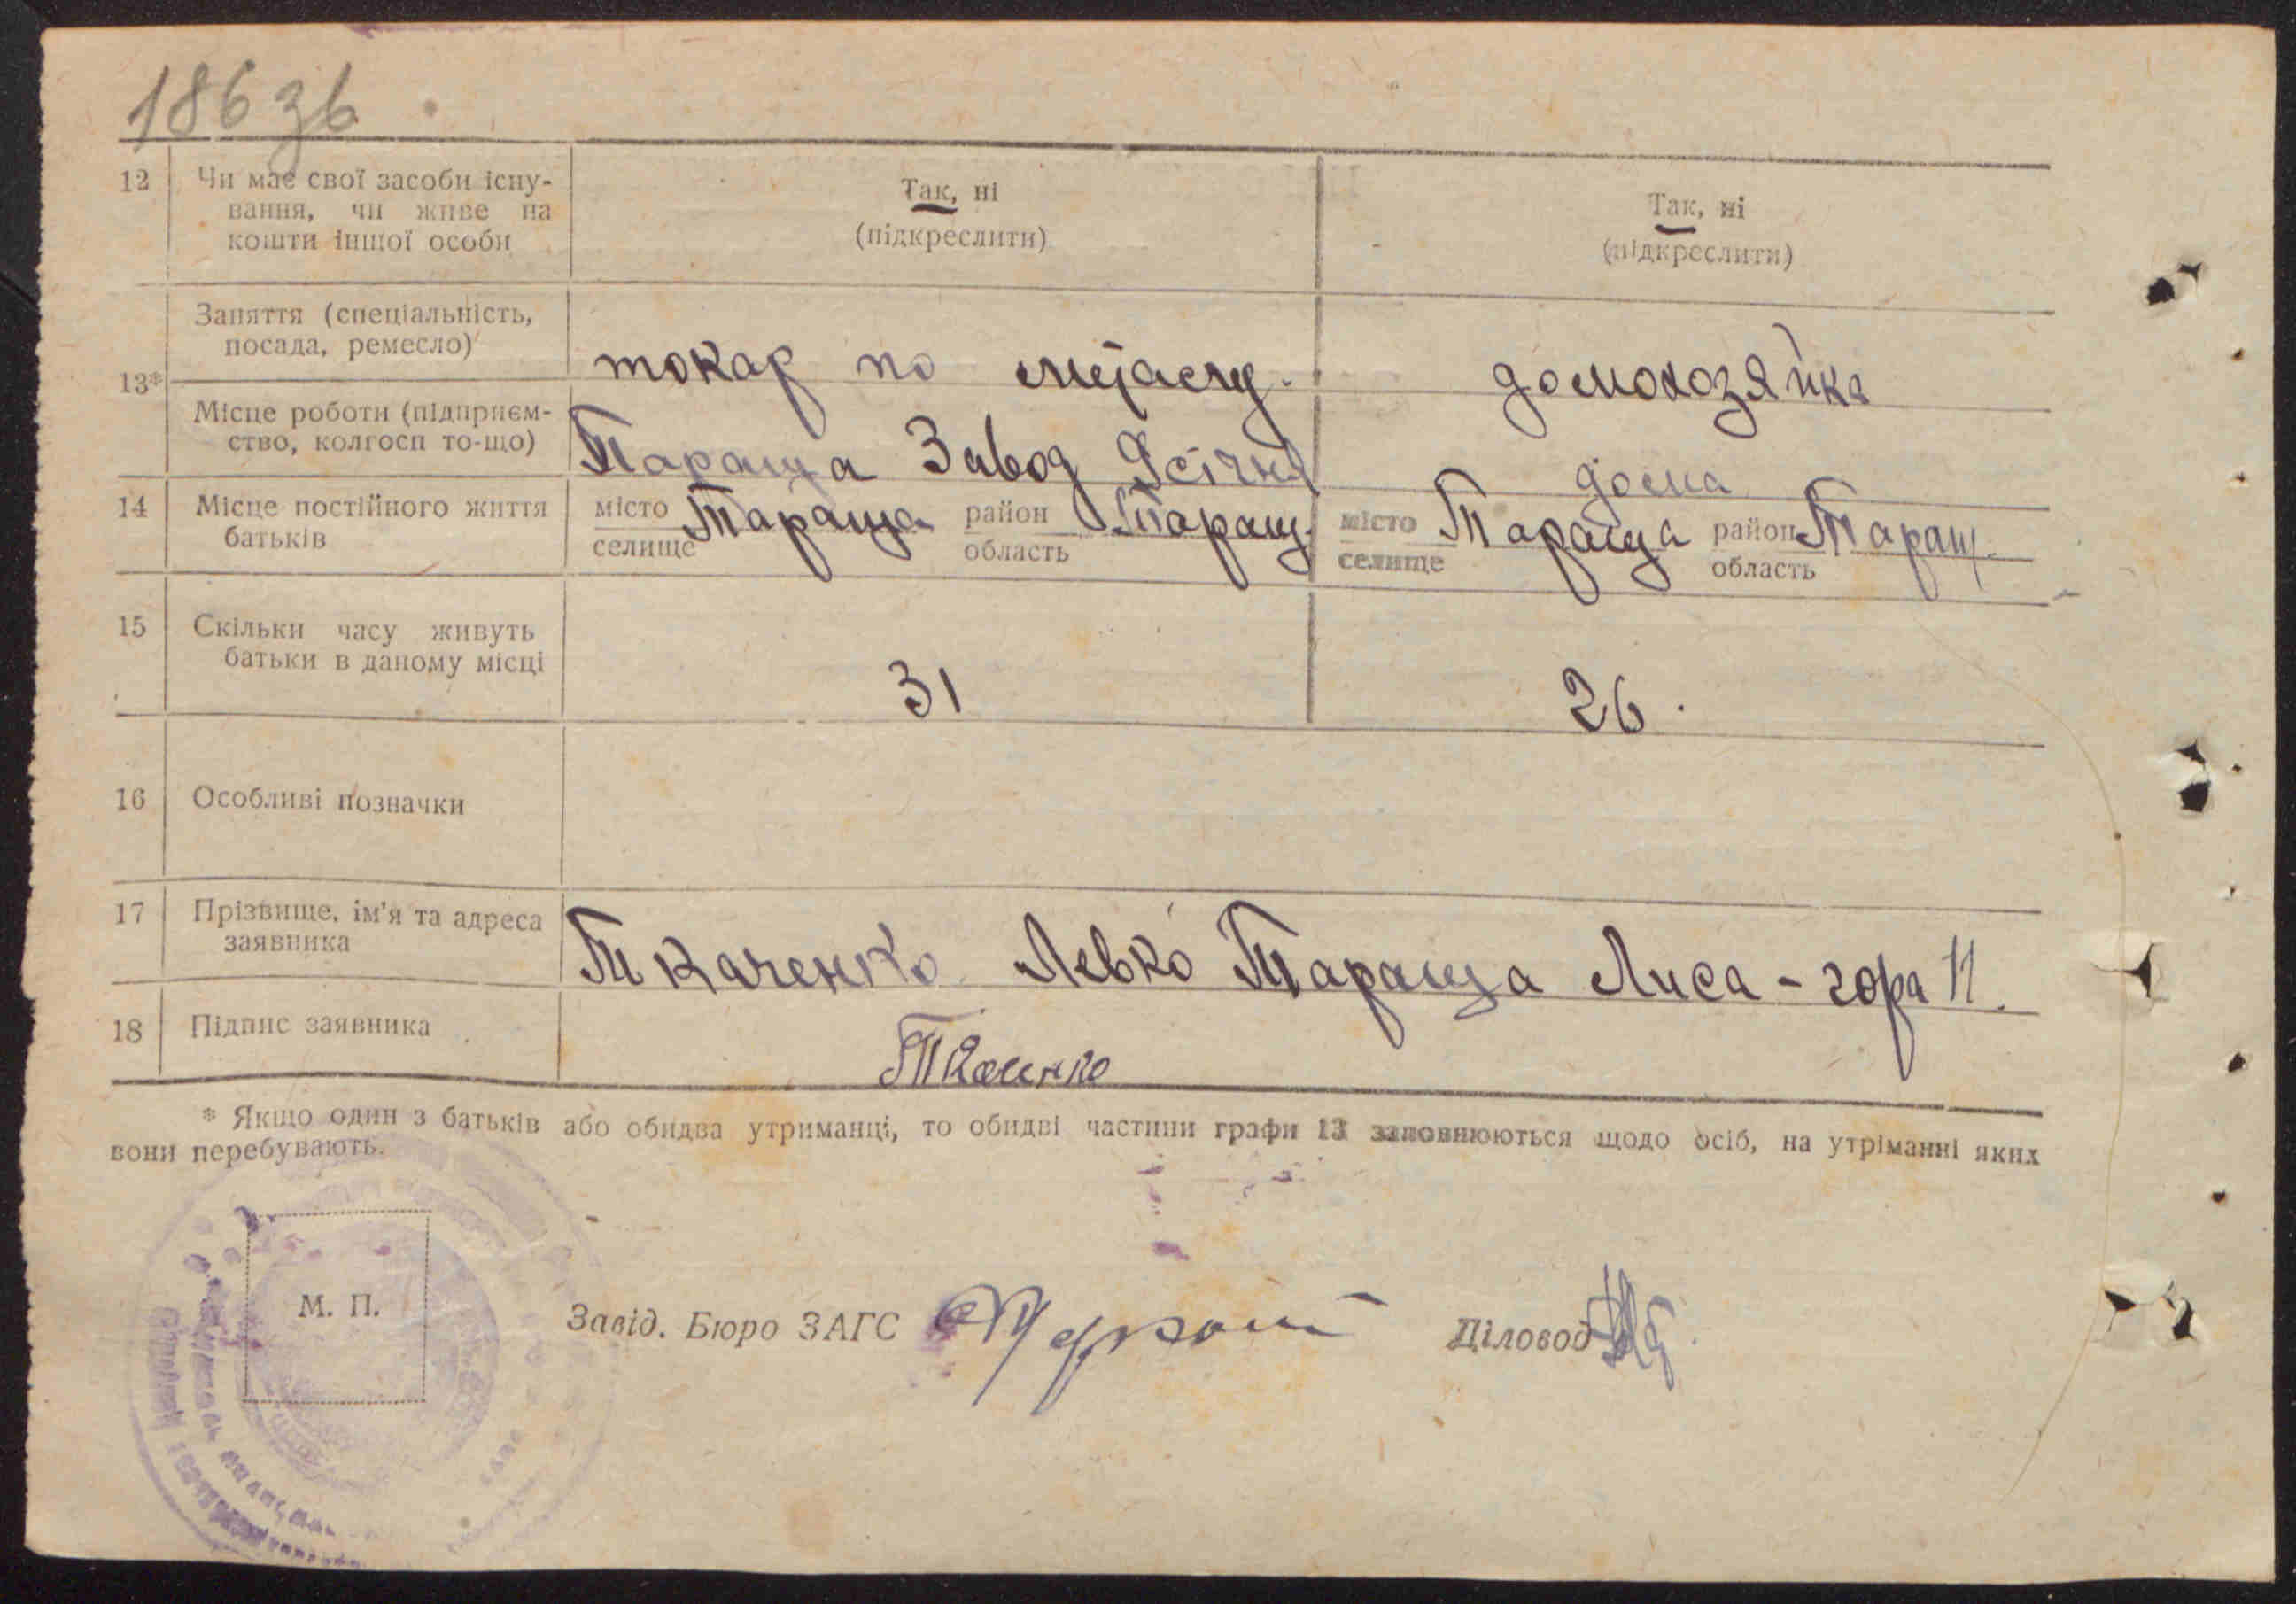 186 зв
12 Чи має свої засоби існу-
вання, чи живе на
кошти іншої особи
Так, ні
(підкреслити)
Так, ні
(підкреслити)
13*
Заняття (спеціальність,
посада, ремесло)
токар по
домохозяйка
Місце роботи (підприєм-
ство, колгосп то-що)
Тараща Завод
дома
14 Місце постійного життя
батьків
місто Тараща район Таращ.
селище область
місто Тараща район Таращ.
селище область
15 Скільки часу живуть
батьки в даному місці
31
26.
16 Особливі позначки
17 Прізвище, ім'я та адреса
заявника
Ткаченко Левко Тараща Лиса - гора 11.
18 Підпис заявника
* Якщо один з батьків або обидва утриманці, то обидві частини графи 13 заповнюються щодо осіб, на утріманні яких
вони перебувають.
М. П.
Завід. Бюро ЗАГС
Діловод